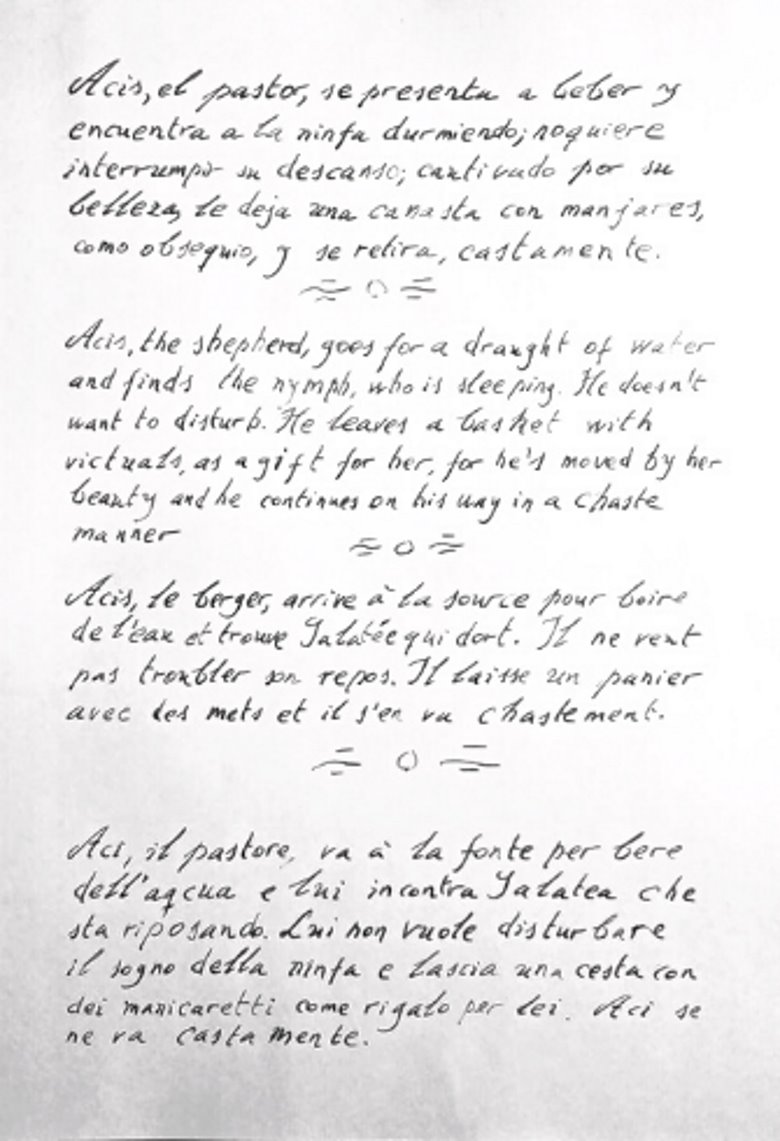 Acis, el pastor, se presenta a beber y
encuentra a la ninfa durmiendo; no quiere
interrumpir su descanso; cautivado por su
belleza, le deja una canasta con manjares,
como obsequio, y se retira, castamente.
Acis, the shepherd, goes for a draught of water
and finds the nymph, who is sleeping. He doesn't
want to disturb. He leaves a basket with
victuals, as a gift for her, for he's moved by her
beauty and he continues on his way in a chaste
manner
Acis, le berger, arrive à la source pour boire
de l'eau et trouve Galatée qui dort. Il ne veut
pas troubler son repos. Il laisse un panier
avec des mets et il s'en va chastement.
Aci, il pastore, va à la fonte per bere
dell'aqcua e lui incontra Galatea che
sta riposando. Lui non vuole disturbare
il sogno della ninfa e lascia una cesta con
dei manicaretti come rigalo per lei. Aci se
ne va castamente.